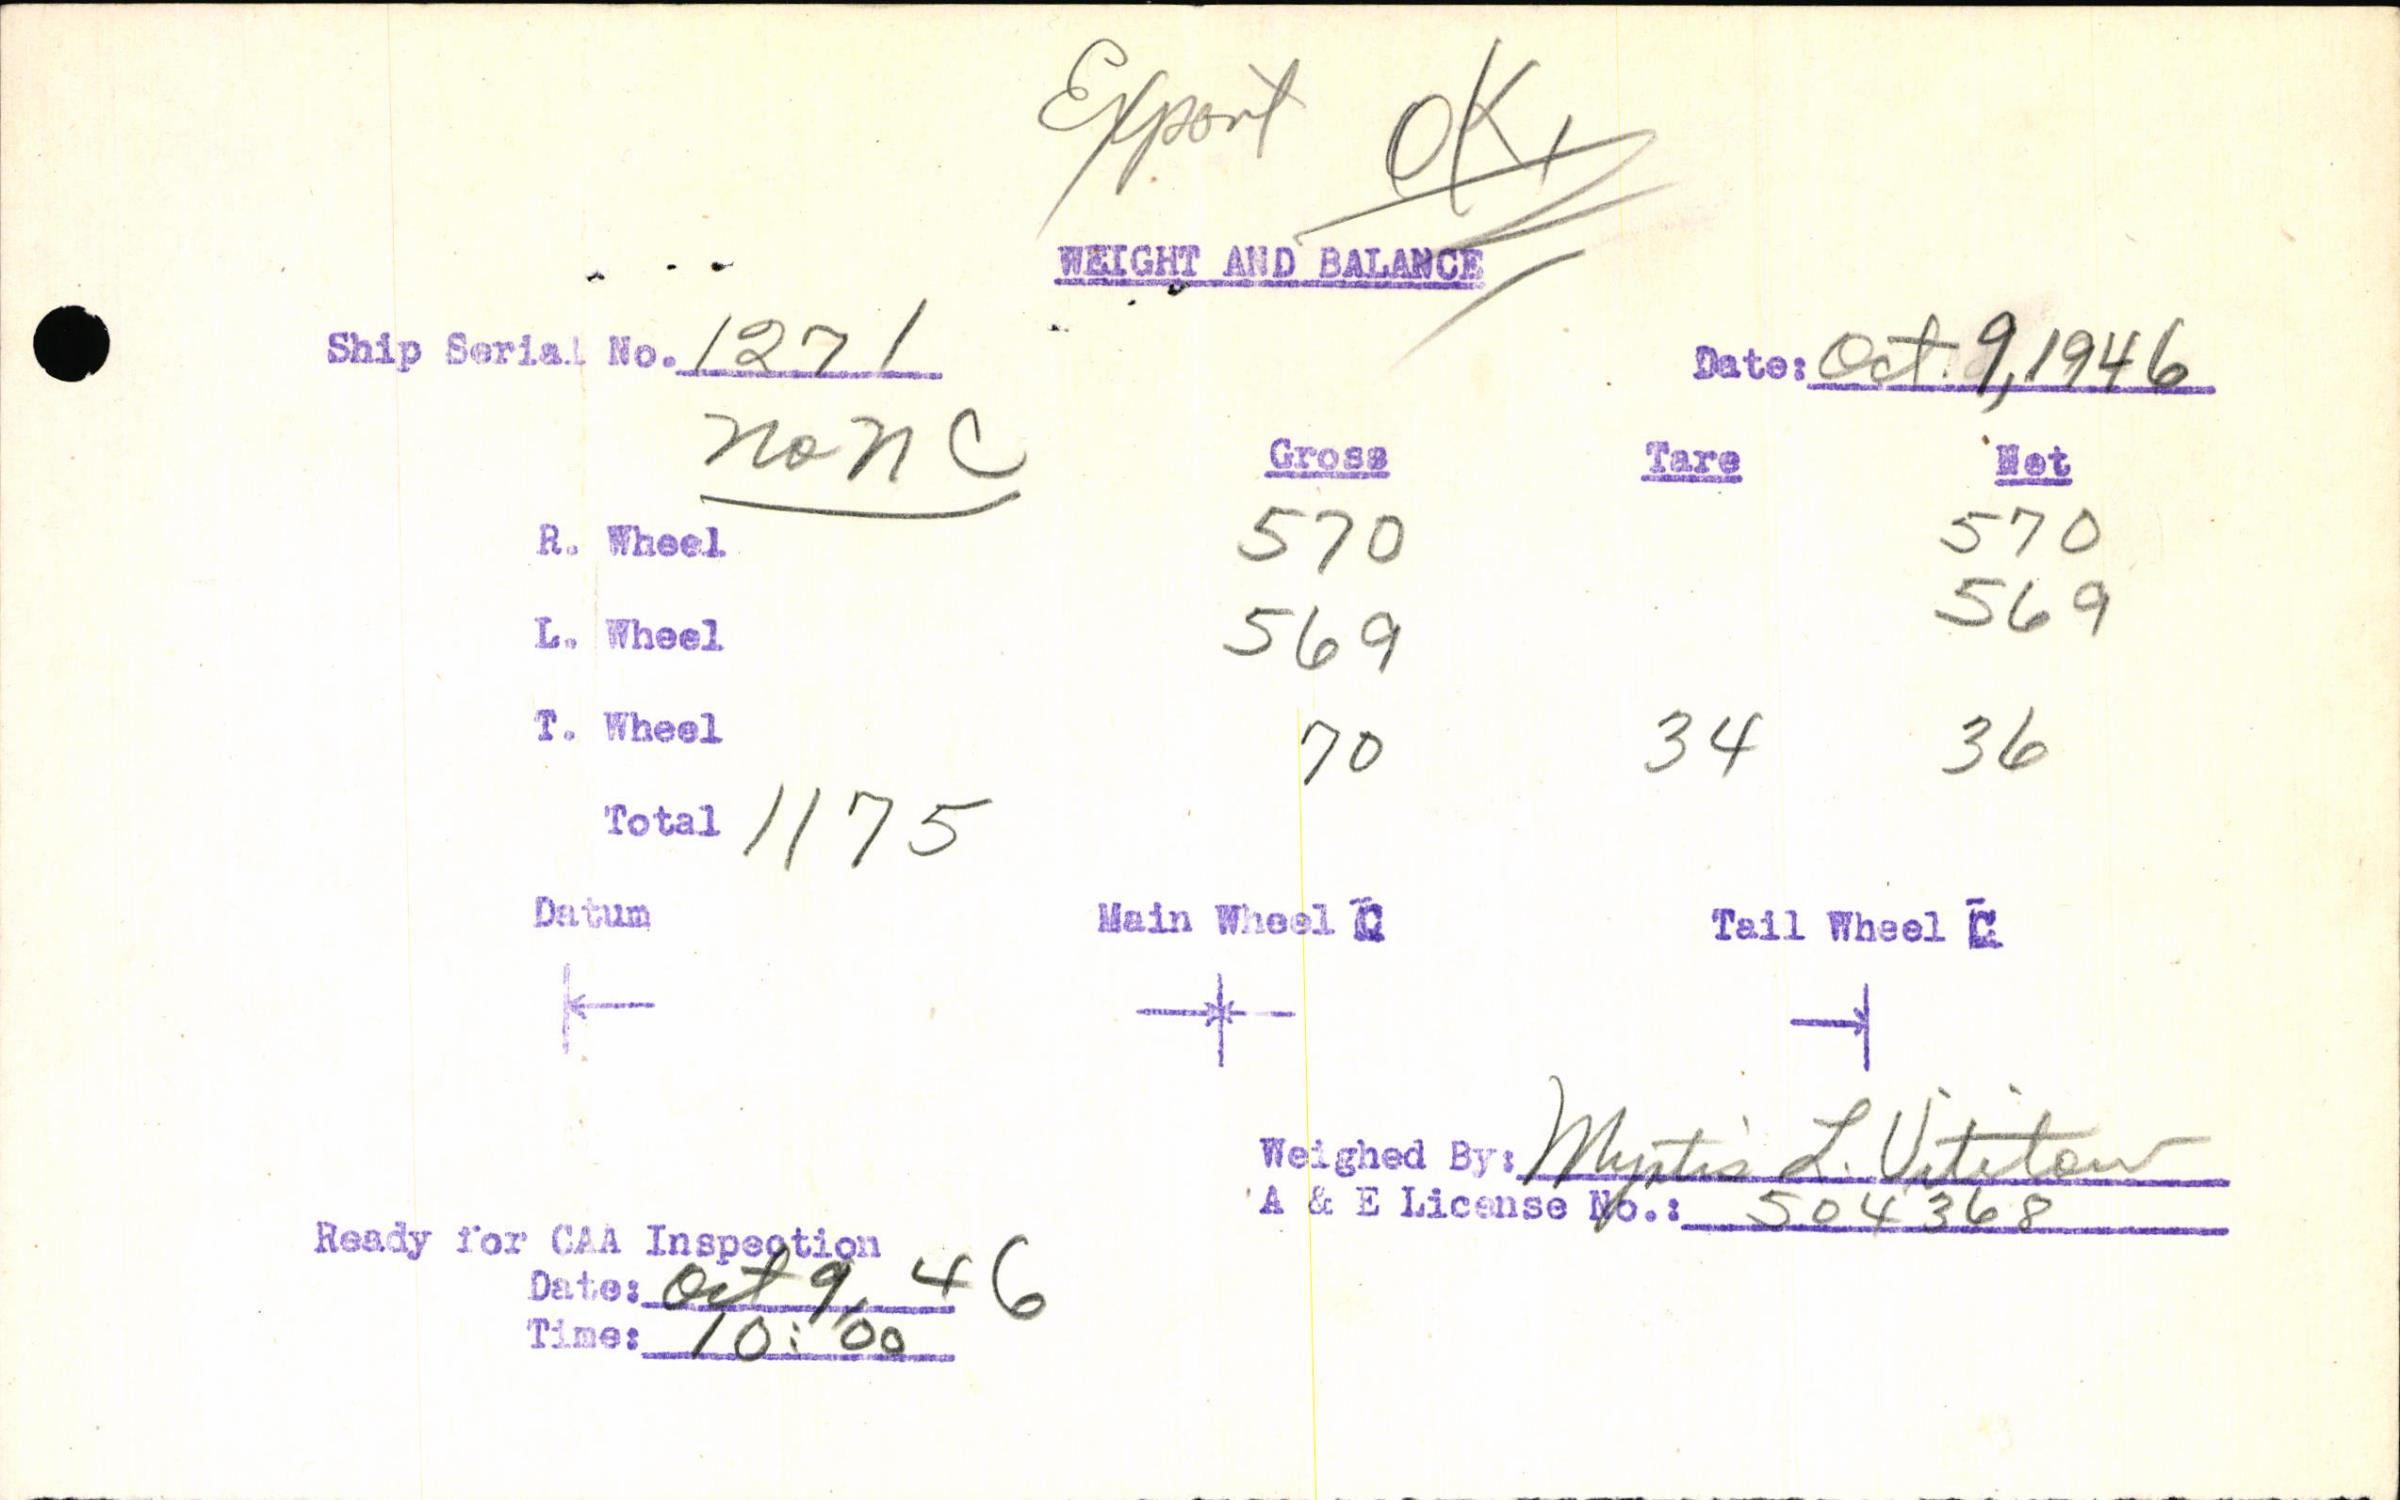 Export OK
WEIGHT AND BALANCE
Ship Serial No. 1271 Date: Oct. 9, 1946
No NC
Gross Tare Net
R. Wheel 570 570
L. Wheel 569 569
T. Wheel 70 34 36
Total 1175
Datum Main Wheel C Tail Wheel C
Weighed By: Myrtis L. Vititow
A & E License No.: 504368
Ready for CAA Inspection
Date: Oct 9, 46
Time: 10:00